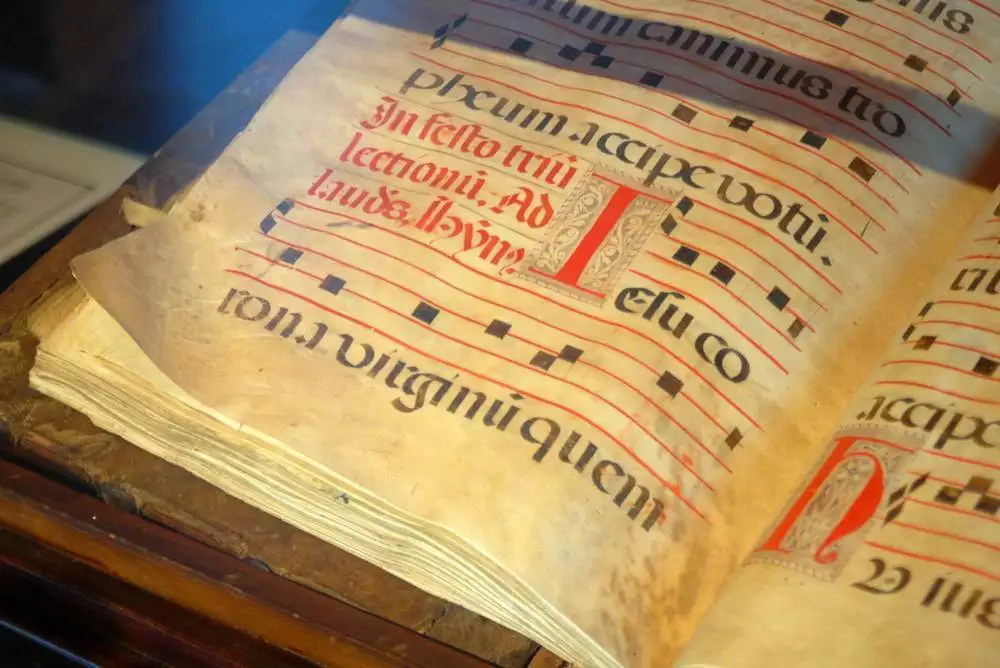 canimus tro
pheum accipe votū.
In festo triū
lectionū. Ad
laudes, hȳm⁹.
Iesu co
rona virginū quem
accipe